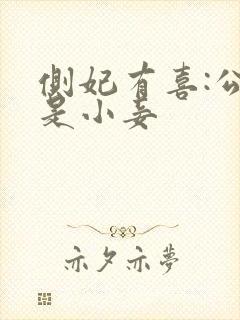 側妃有喜:公
是小妾
亦夕亦夢